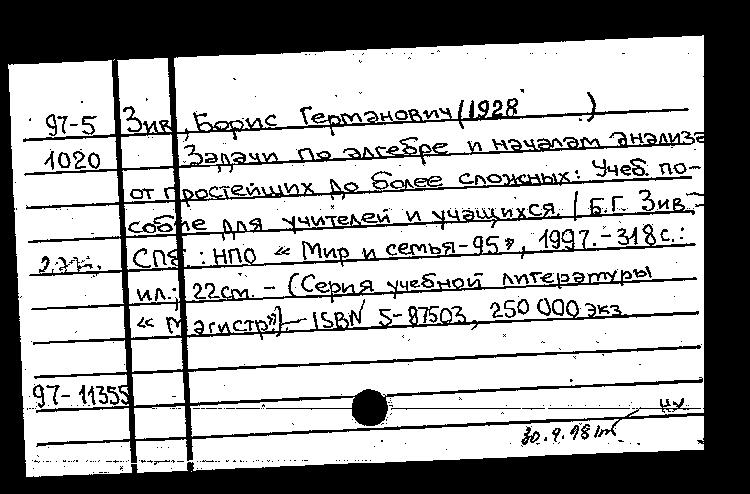 97-5 Зив, Борис Германович (1928 )
1020 Задачи по алгебре и началам анализа
от простейших до более сложных: Учеб. по-
собие для учителей и учащихся. / Б.Г. Зив.-
СПб.: НПО « Мир и семья-95», 1997.-318с.:
ил.; 22см. - (Серия учебной литературы
« Магистр»).- ISBN 5-87503, 250 000 экз
97-11355
НУ
30.9.98